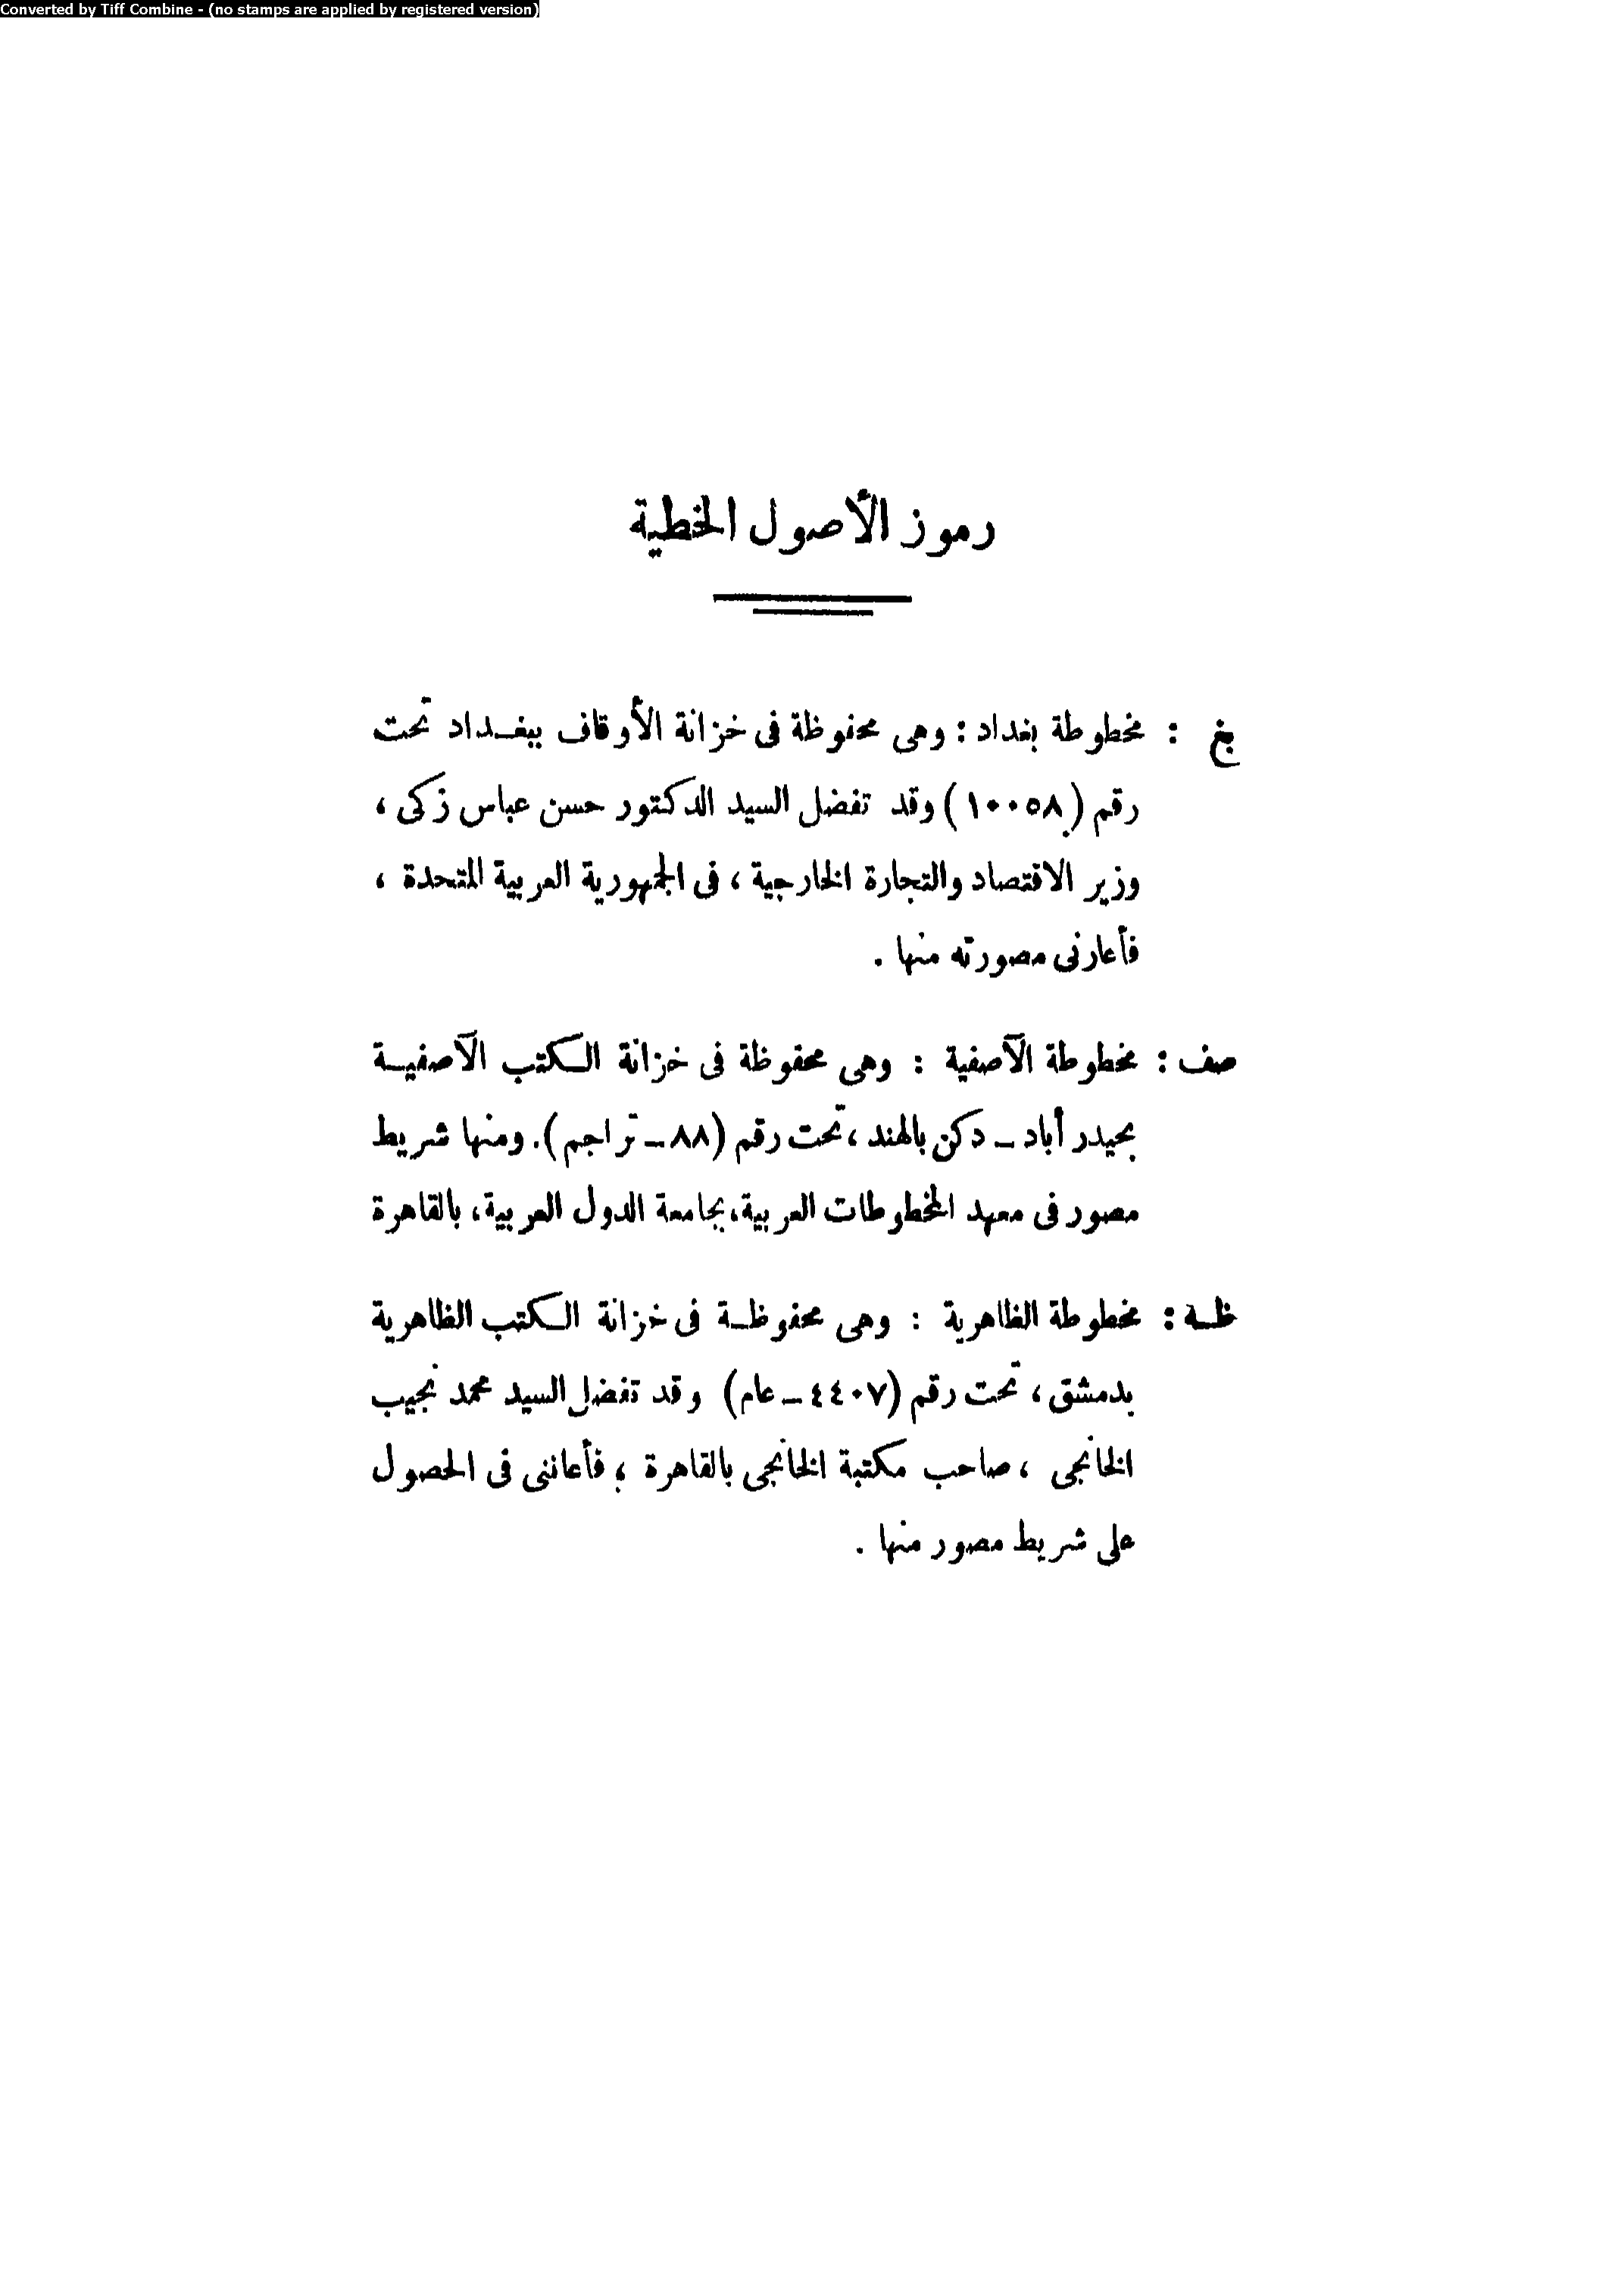 Converted by Tiff Combine - (no stamps are applied by registered version)
رموز الأصول الخطية
بغ : مخطوطة بغداد : وهى محفوظة فى خزانة الأوقاف ببغداد تحت
رقم (١٠٠٥٨) وقد تفضل السيد الدكتور حسن عباس زكى ،
وزير الاقتصاد والتجارة الخارجية ، فى الجمهورية العربية المتحدة ،
فأعارنى مصورته منها .
صف : مخطوطة الآصفية : وهى محفوظة فى خزانة الكتب الآصفية
بحيدر أباد - دكن بالهند ، تحت رقم (٨٨ - تراجم). ومنها شريط
مصور فى معهد المخطوطات العربية، بجامعة الدول العربية، بالقاهرة
ظه : مخطوطة الظاهرية : وهى محفوظة فى خزانة الكتب الظاهرية
بدمشق ، تحت رقم (٤٤٠٧ - عام) وقد تفضل السيد محمد نجيب
الخانجى ، صاحب مكتبة الخانجى بالقاهرة ، فأعاننى فى الحصول
على شريط مصور منها .